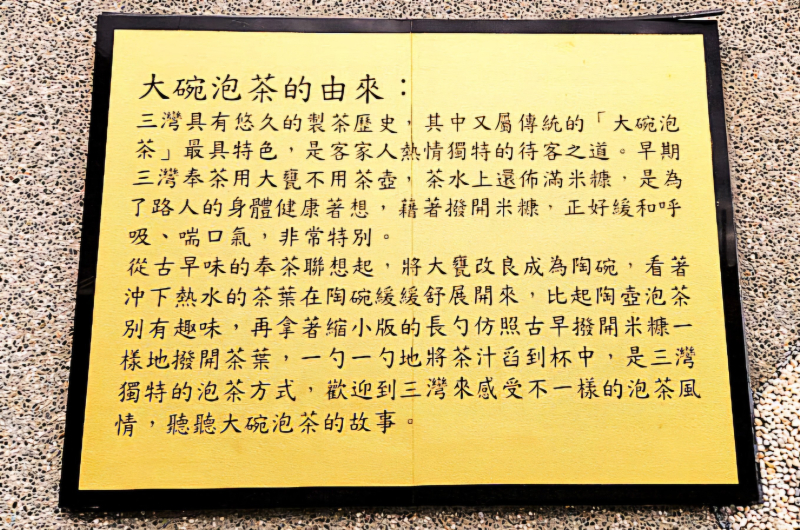 大碗泡茶的由來：
三灣具有悠久的製茶歷史，其中又屬傳統的「大碗泡
茶」最具特色，是客家人熱情獨特的待客之道。早期
三灣奉茶用大甕不用茶壺，茶水上還佈滿米糠，是為
了路人的身體健康著想，藉著撥開米糠，正好緩和呼
吸、喘口氣，非常特別。
從古早味的奉茶聯想起，將大甕改良成為陶碗，看著
沖下熱水的茶葉在陶碗緩緩舒展開來，比起陶壺泡茶
別有趣味，再拿著縮小版的長勺仿照古早撥開米糠一
樣地撥開茶葉，一勺一勺地將茶汁舀到杯中，是三灣
獨特的泡茶方式，歡迎到三灣來感受不一樣的泡茶風
情，聽聽大碗泡茶的故事。